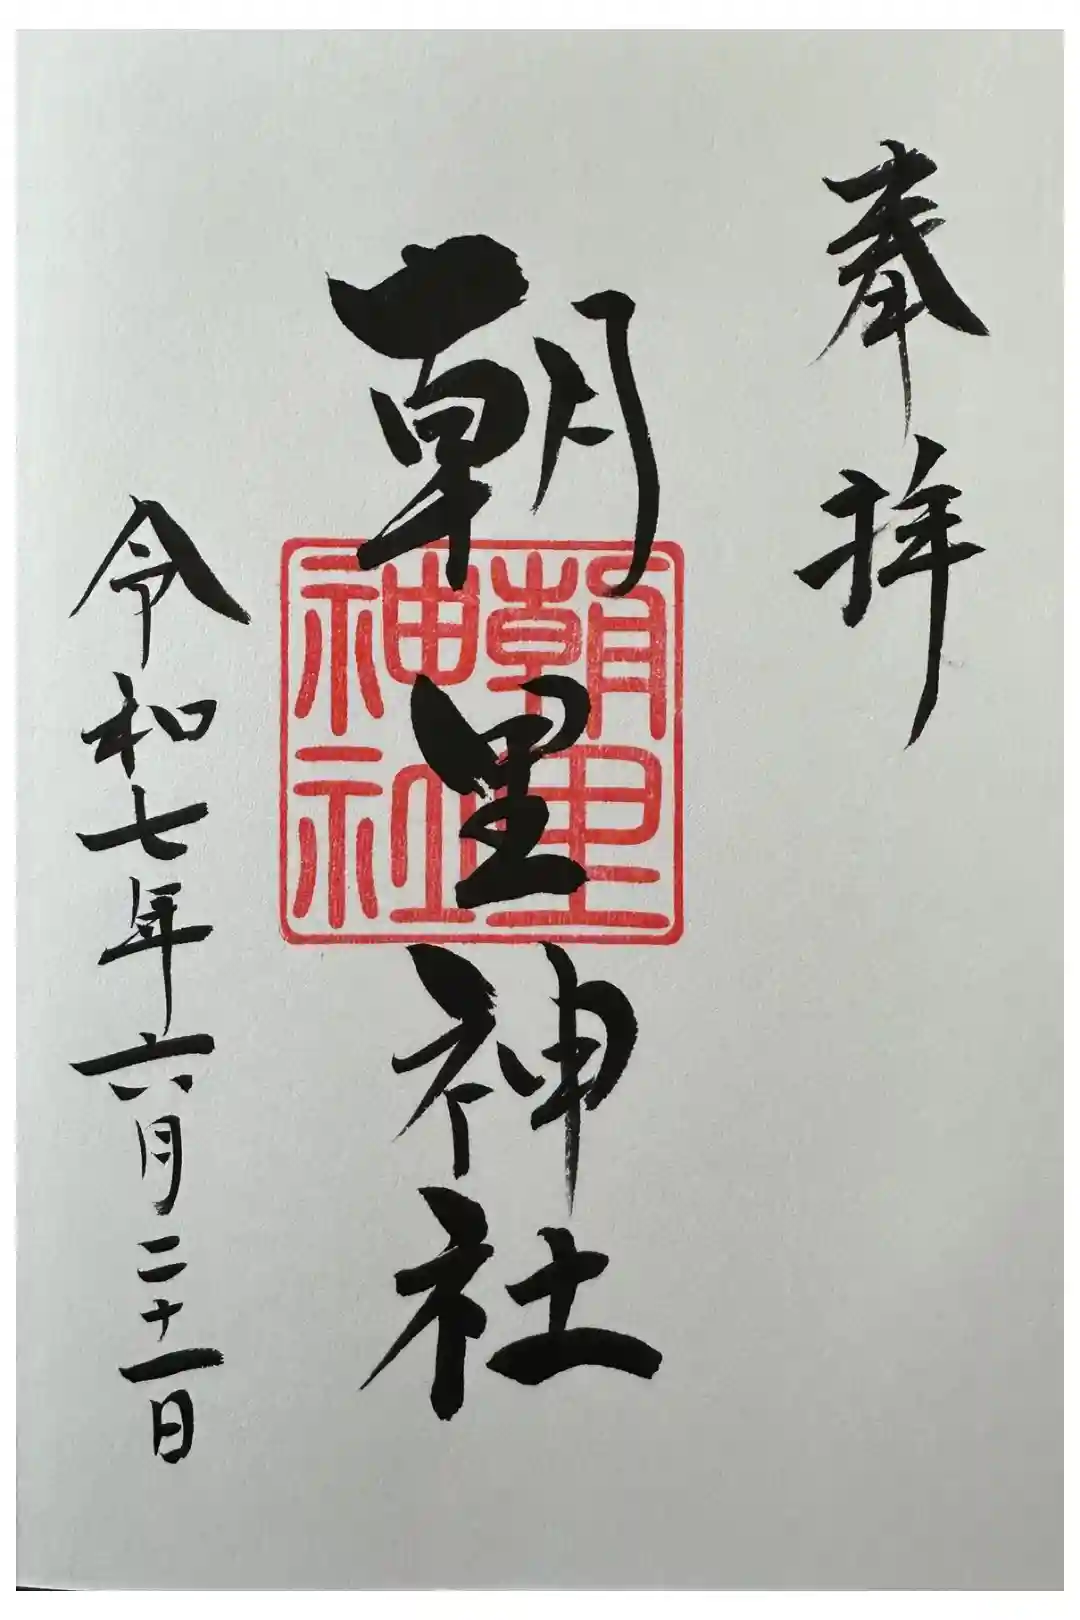 奉拝
朝里神社
朝里
神社
令和七年六月二十一日